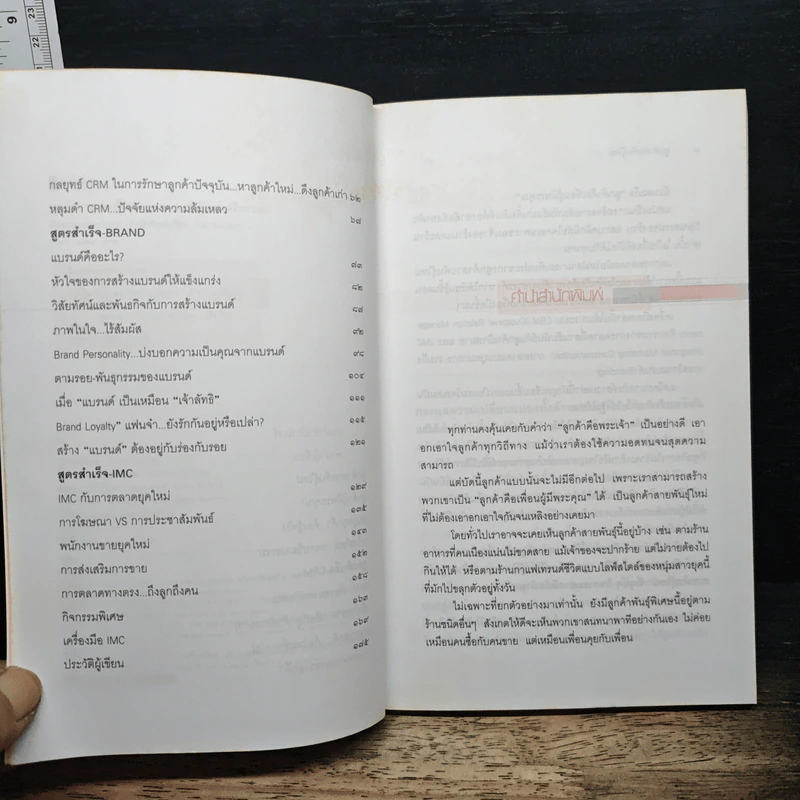 กลยุทธ์ CRM ในการรักษาลูกค้าปัจจุบัน...หาลูกค้าใหม่...ดึงลูกค้าเก่า ๖๒
หลุมดำ CRM...ปัจจัยแห่งความล้มเหลว ๖๗
สูตรสำเร็จ-BRAND
แบรนด์คืออะไร? ๗๓
หัวใจของการสร้างแบรนด์ให้แข็งแกร่ง ๘๒
วิสัยทัศน์และพันธกิจกับการสร้างแบรนด์ ๘๗
ภาพในใจ...ไร้สัมผัส ๙๒
Brand Personality...บ่งบอกความเป็นคุณจากแบรนด์ ๙๘
ตามรอย-พันธุกรรมของแบรนด์ ๑๐๔
เมื่อ “แบรนด์ เป็นเหมือน “เจ้าลัทธิ” ๑๑๑
Brand Loyalty” แฟนจ๋า...ยังรักกันอยู่หรือเปล่า? ๑๑๕
สร้าง “แบรนด์” ต้องอยู่กับร่องกับรอย ๑๒๑
สูตรสำเร็จ-IMC
IMC กับการตลาดยุคใหม่ ๑๒๙
การโฆษณา VS การประชาสัมพันธ์ ๑๓๕
พนักงานขายยุคใหม่ ๑๔๓
การส่งเสริมการขาย ๑๕๒
การตลาดทางตรง...ถึงลูกถึงคน ๑๕๘
กิจกรรมพิเศษ ๑๖๓
เครื่องมือ IMC ๑๖๙
ประวัติผู้เขียน ๑๗๕
คำนำสำนักพิมพ์
ทุกท่านคงคุ้นเคยกับคำว่า “ลูกค้าคือพระเจ้า” เป็นอย่างดี เอา
อกเอาใจลูกค้าทุกวิถีทาง แม้ว่าเราต้องใช้ความอดทนจนสุดความ
สามารถ
แต่บัดนี้ลูกค้าแบบนั้นจะไม่มีอีกต่อไป เพราะเราสามารถสร้าง
พวกเขาเป็น “ลูกค้าคือเพื่อนผู้มีพระคุณ” ได้ เป็นลูกค้าสายพันธุ์ใหม่
ที่ไม่ต้องเอาอกเอาใจกันจนเหลิงอย่างเคยมา
โดยทั่วไปเราอาจจะเคยเห็นลูกค้าสายพันธุ์นี้อยู่บ้าง เช่น ตามร้าน
อาหารที่คนเนืองแน่นไม่ขาดสาย แม้เจ้าของจะปากร้าย แต่ไม่วายต้องไป
กินให้ได้ หรือตามร้านกาแฟเทรนด์ชีวิตแบบไลฟ์สไตล์ของหนุ่มสาวยุคนี้
ที่มักไปขลุกตัวอยู่ทั้งวัน
ไม่เฉพาะที่ยกตัวอย่างมาเท่านั้น ยังมีลูกค้าพันธุ์พิเศษนี้อยู่ตาม
ร้านชนิดอื่นๆ สังเกตให้ดีจะเห็นพวกเขาสนทนาพาทีอย่างกันเอง ไม่ค่อย
เหมือนคนซื้อกับคนขาย แต่เหมือนเพื่อนคุยกับเพื่อน
9
23
22